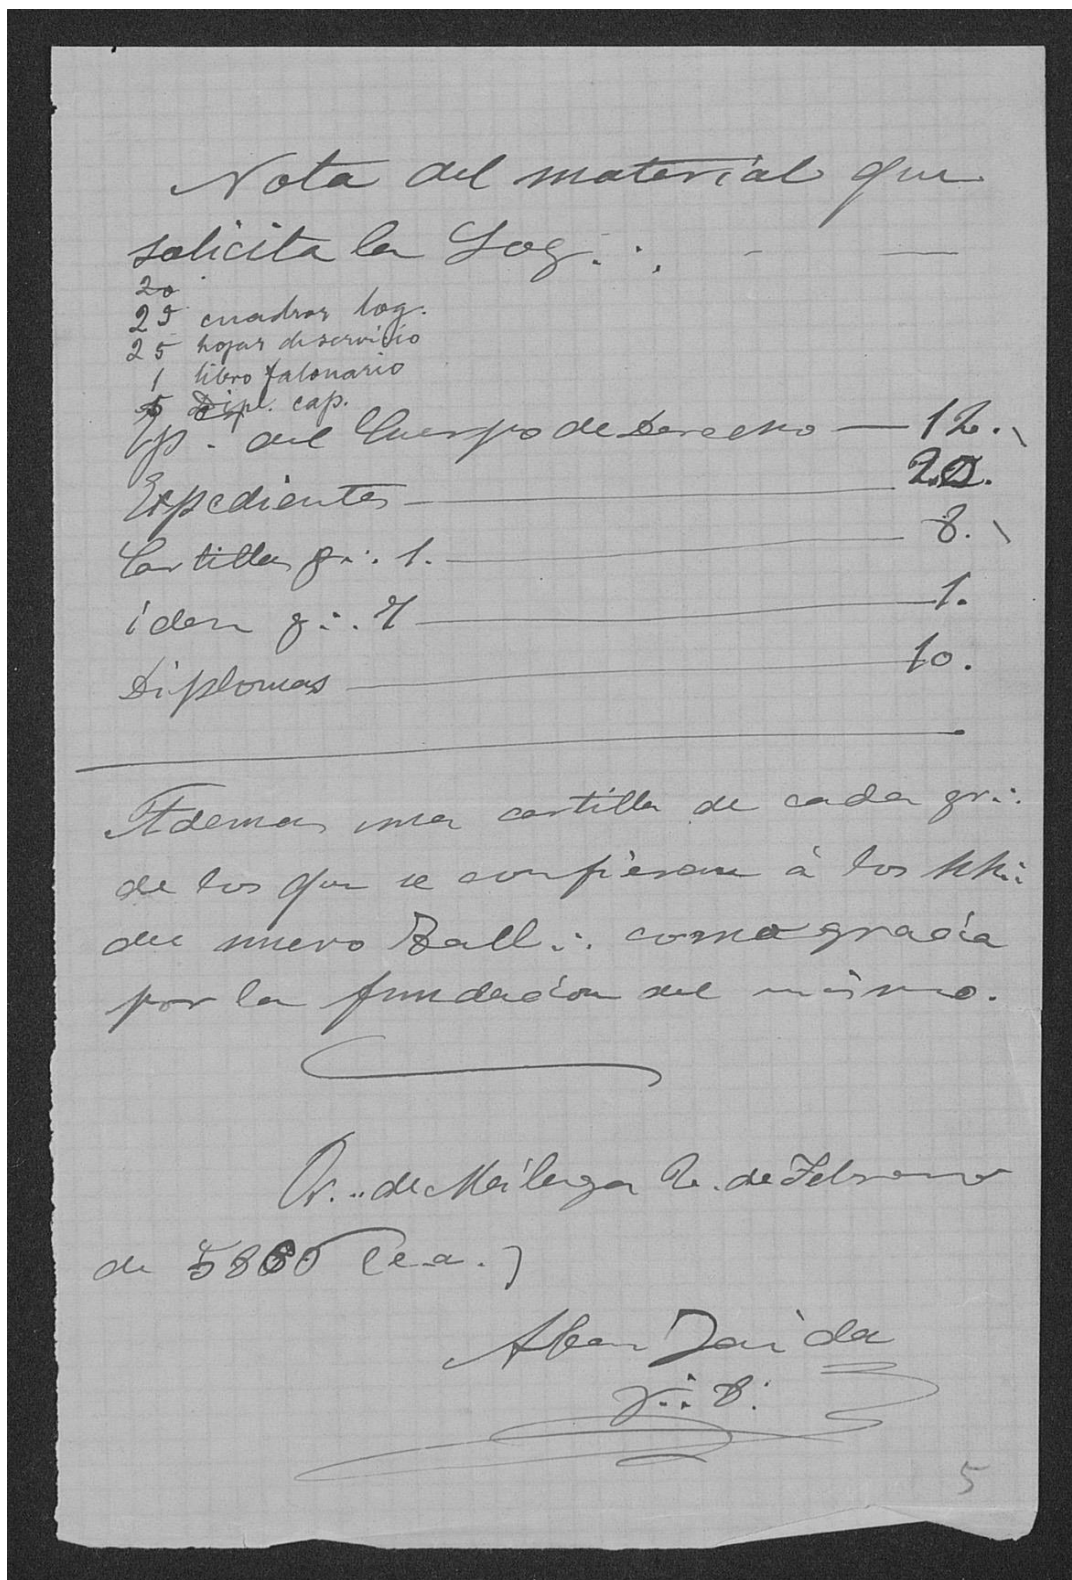 Nota del material que
solicita la Log.·. - —
20
25 cuadros log.
25 hojas de servicio
1 libro talonario
5 Dipl. cap.
Ejp. del Cuerpo de Derecho — 12.
Expedientes — 20.
Cartillas gr.·. 1. — 8.
iden g.·. — 1.
Diplomas — 10.
Ademas una cartilla de cada gr.·.
de los que se confieran á los hh.·.
del nuevo Tall.·. como gracia
por la fundacion del mismo.
Or.·. de Málaga 2. de Febrero
de 5880 (e.a.)
Aben Zaida
g.·. 8.·
5